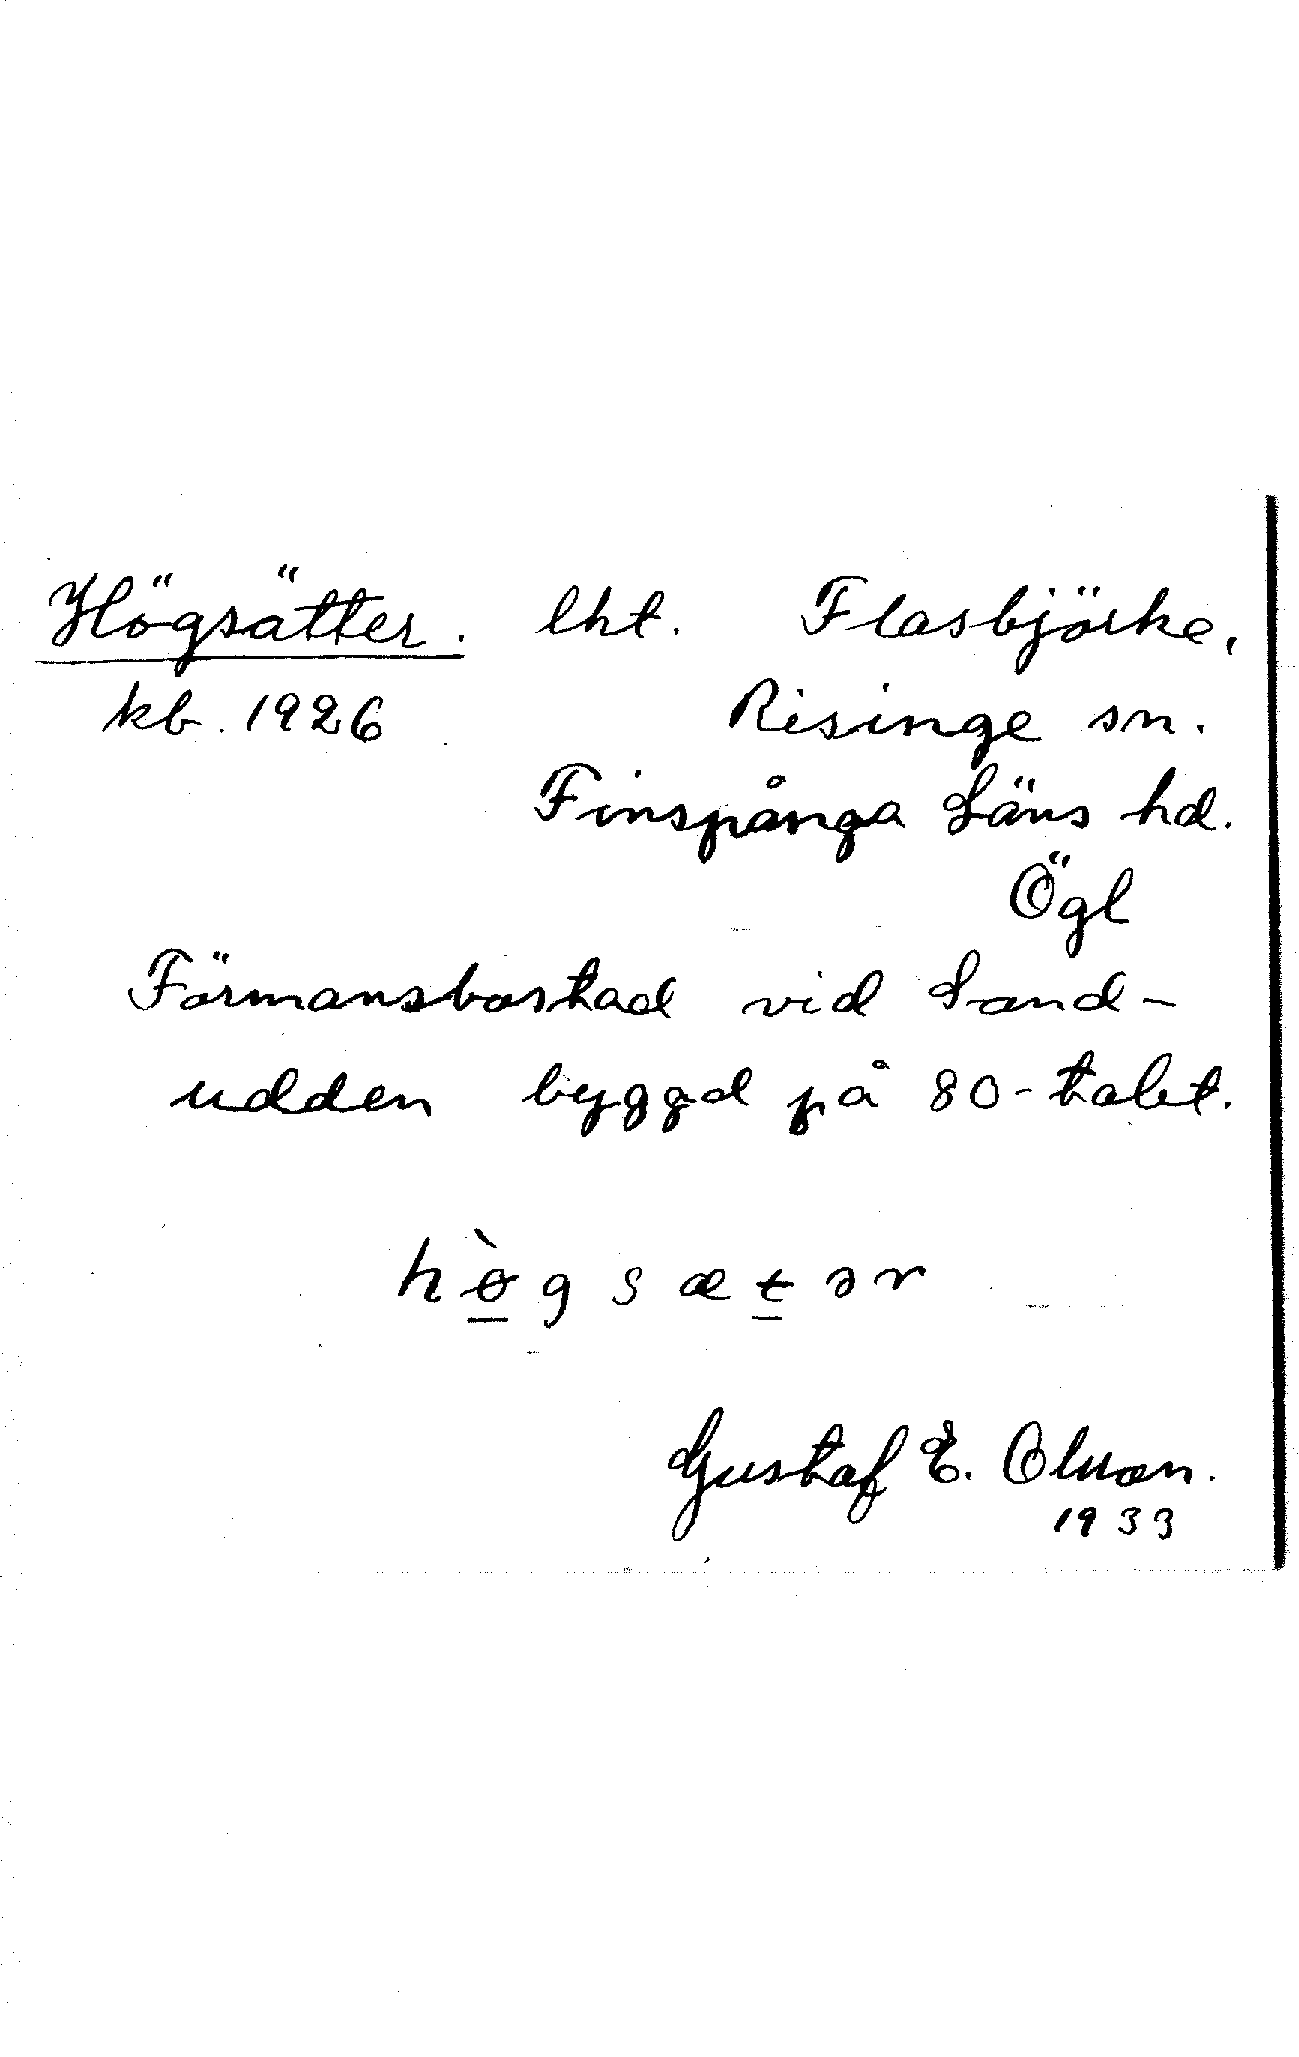 Högsätter. lht. Flasbjörke,
kb. 1926 Risinge sn.
Finspånga Läns hd.
Ögl
Förmansbostad vid Sand-
udden byggd på 80-talet.
hø̀gsætər
Gustaf E. Olsson.
1933